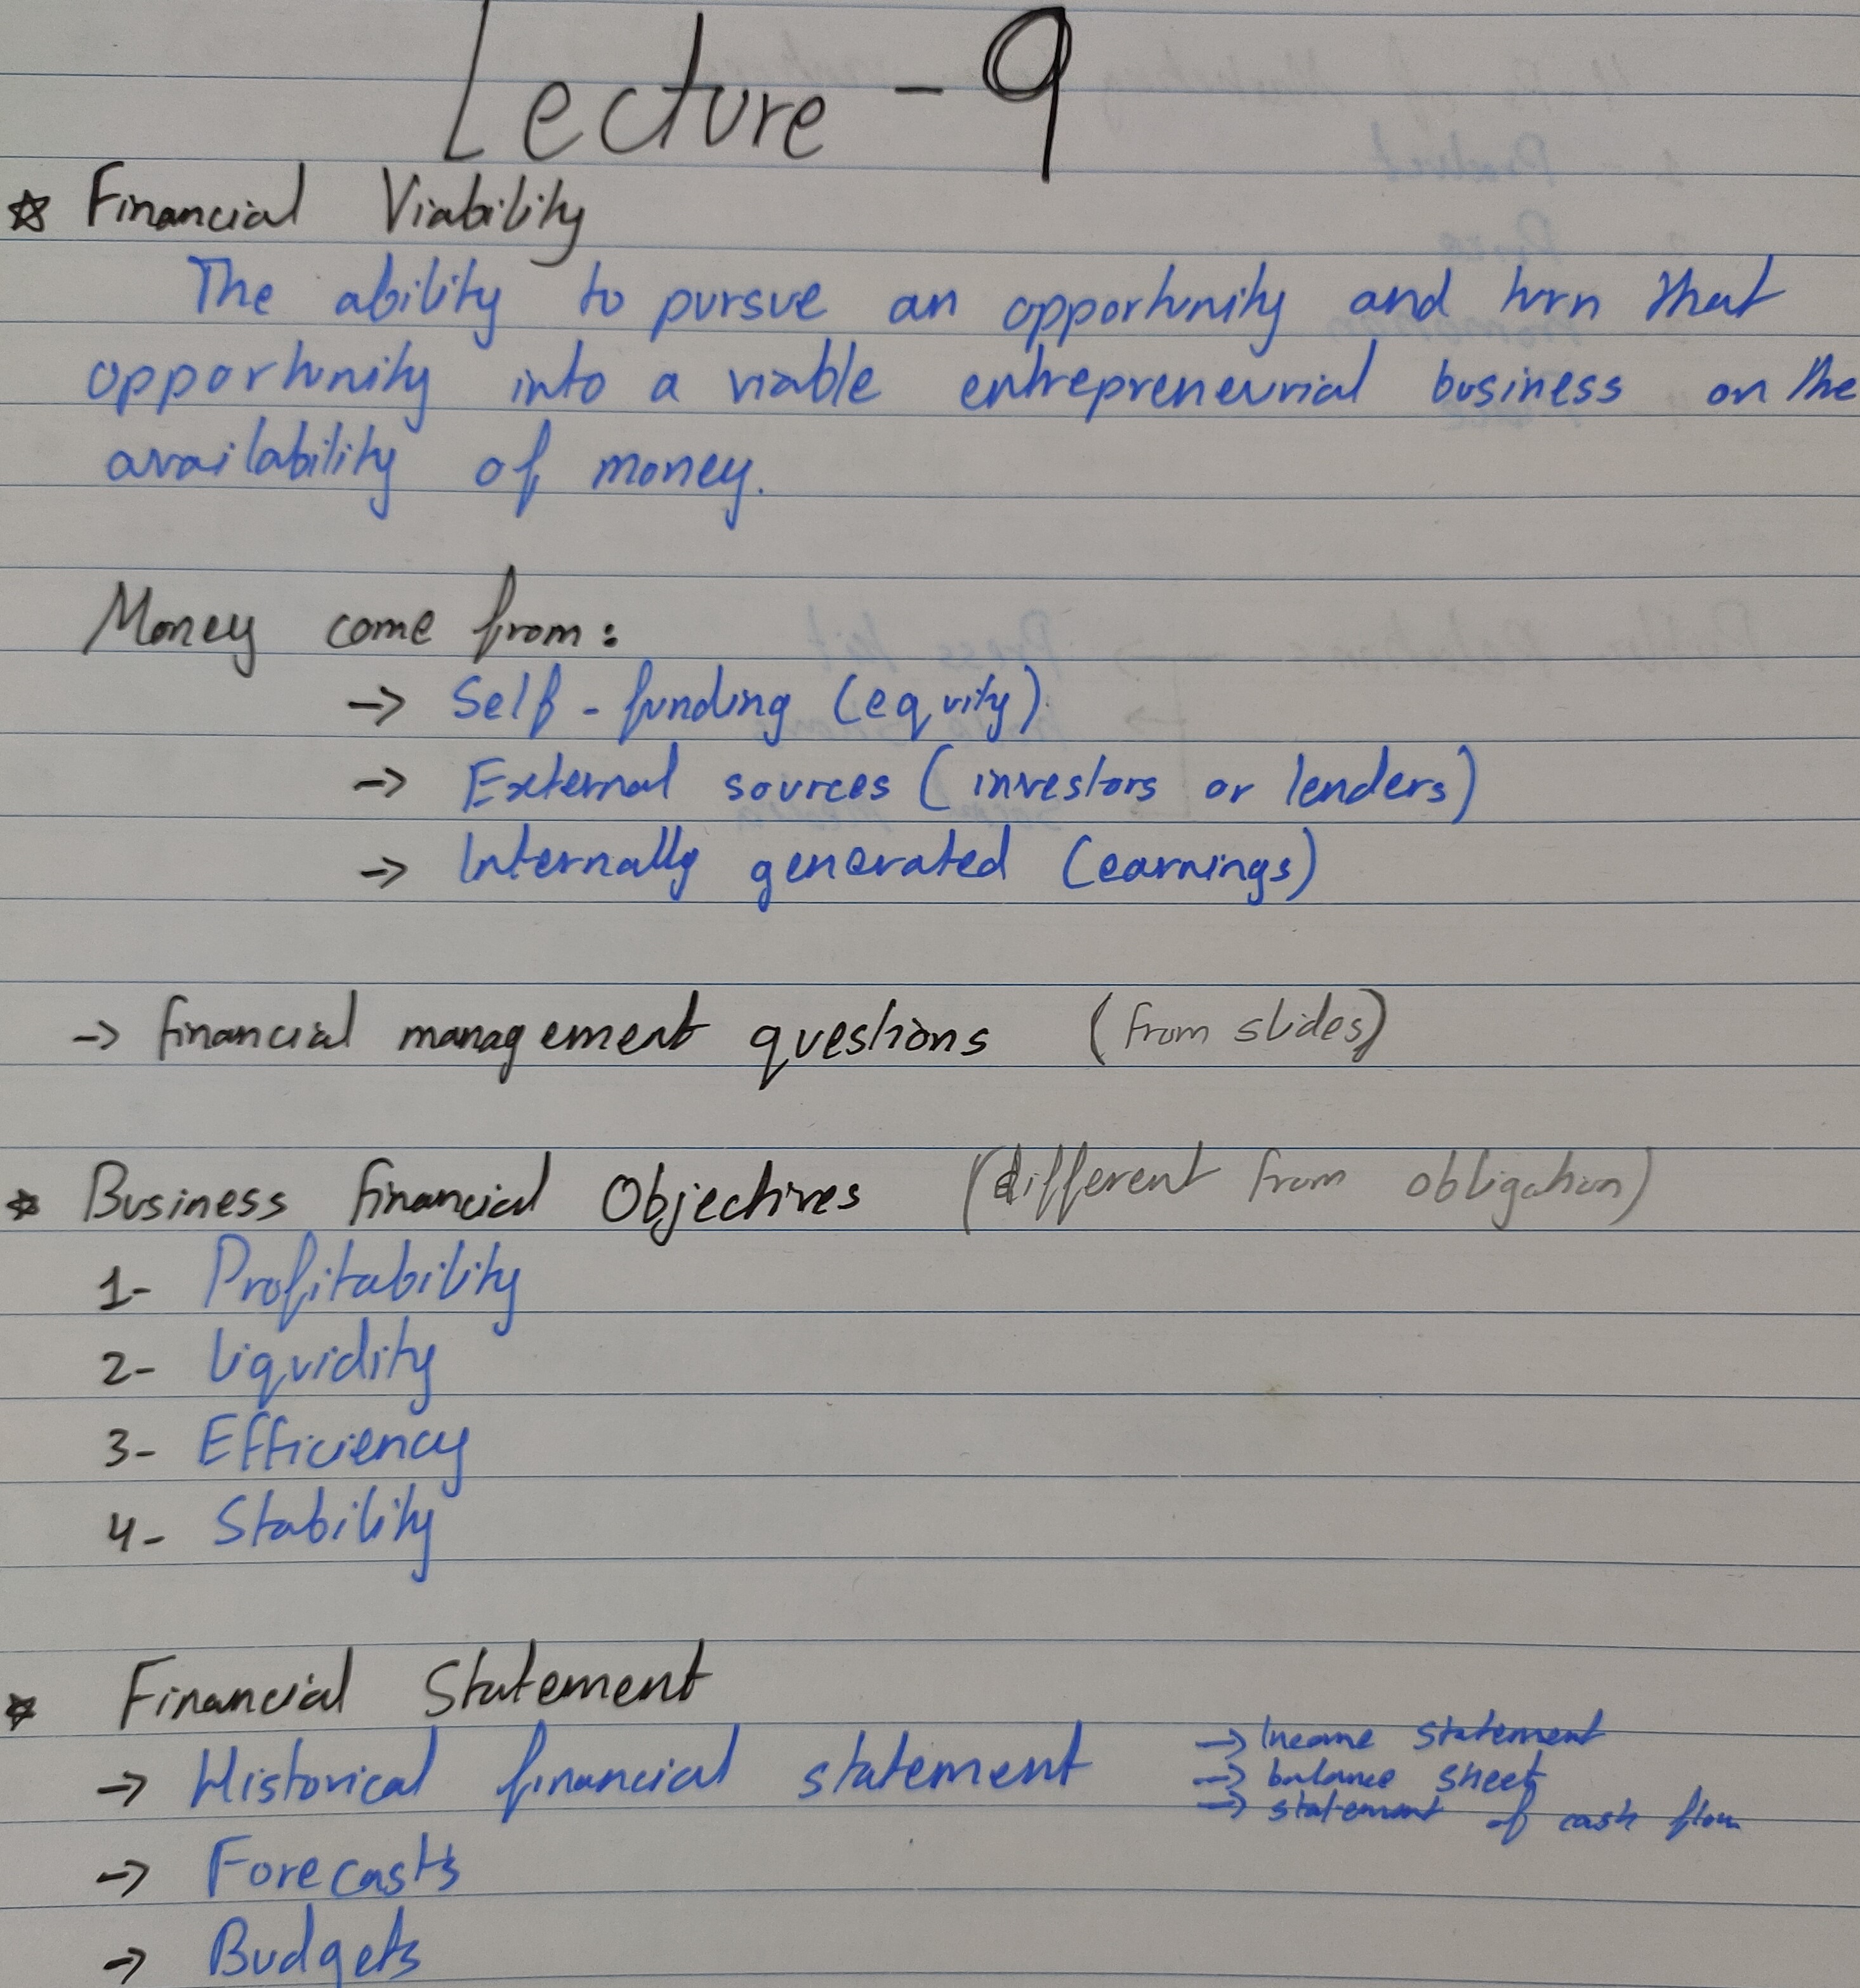 Lecture - 9
☆ Financial Viability
The ability to pursue an opportunity and turn that
opportunity into a viable entrepreneurial business on the
availability of money.
Money come from:
-> Self-funding (equity).
-> External sources (investors or lenders)
-> Internally generated (earnings)
-> financial management questions (from slides)
☆ Business financial Objectives (different from obligation)
1- Profitability
2- liquidity
3- Efficiency
4- Stability
☆ Financial Statement
-> Historical financial statement -> income statement
-> balance sheet
-> statement of cash flow
-> Forecasts
-> Budgets